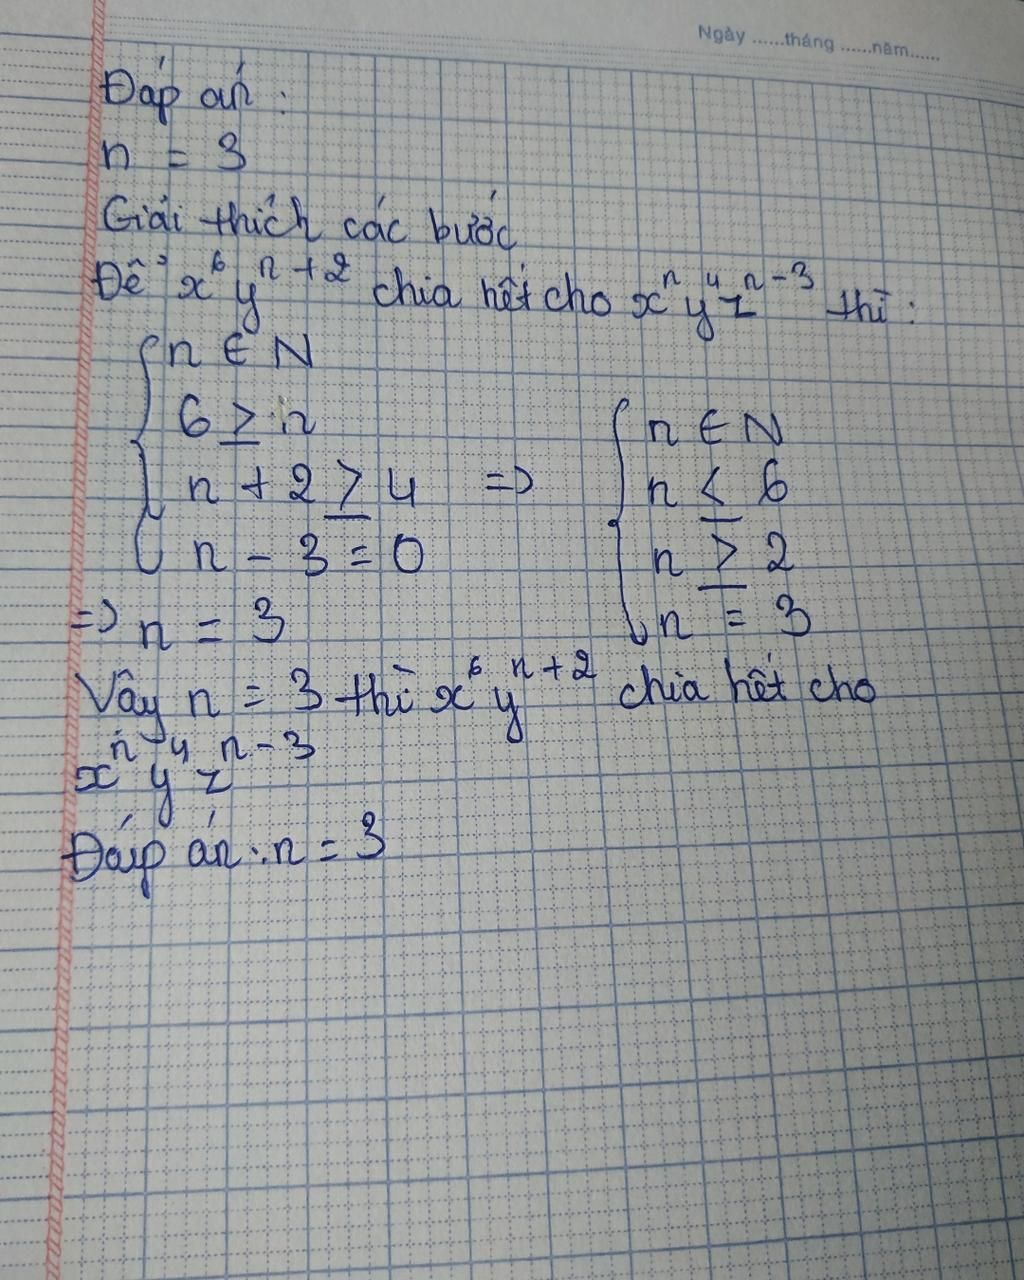 Ngày ......tháng ......năm......
Đáp án :
n = 3
Giải thích các bước
Để x⁶yⁿ⁺² chia hết cho xⁿy⁴zⁿ⁻³ thì :
{ n ∈ N
6 ≥ n
n + 2 ≥ 4 =>
n - 3 = 0
{ n ∈ N
n ≤ 6
n ≥ 2
n = 3
=> n = 3
Vậy n = 3 thì x⁶yⁿ⁺² chia hết cho
xⁿy⁴zⁿ⁻³
Đáp án : n = 3